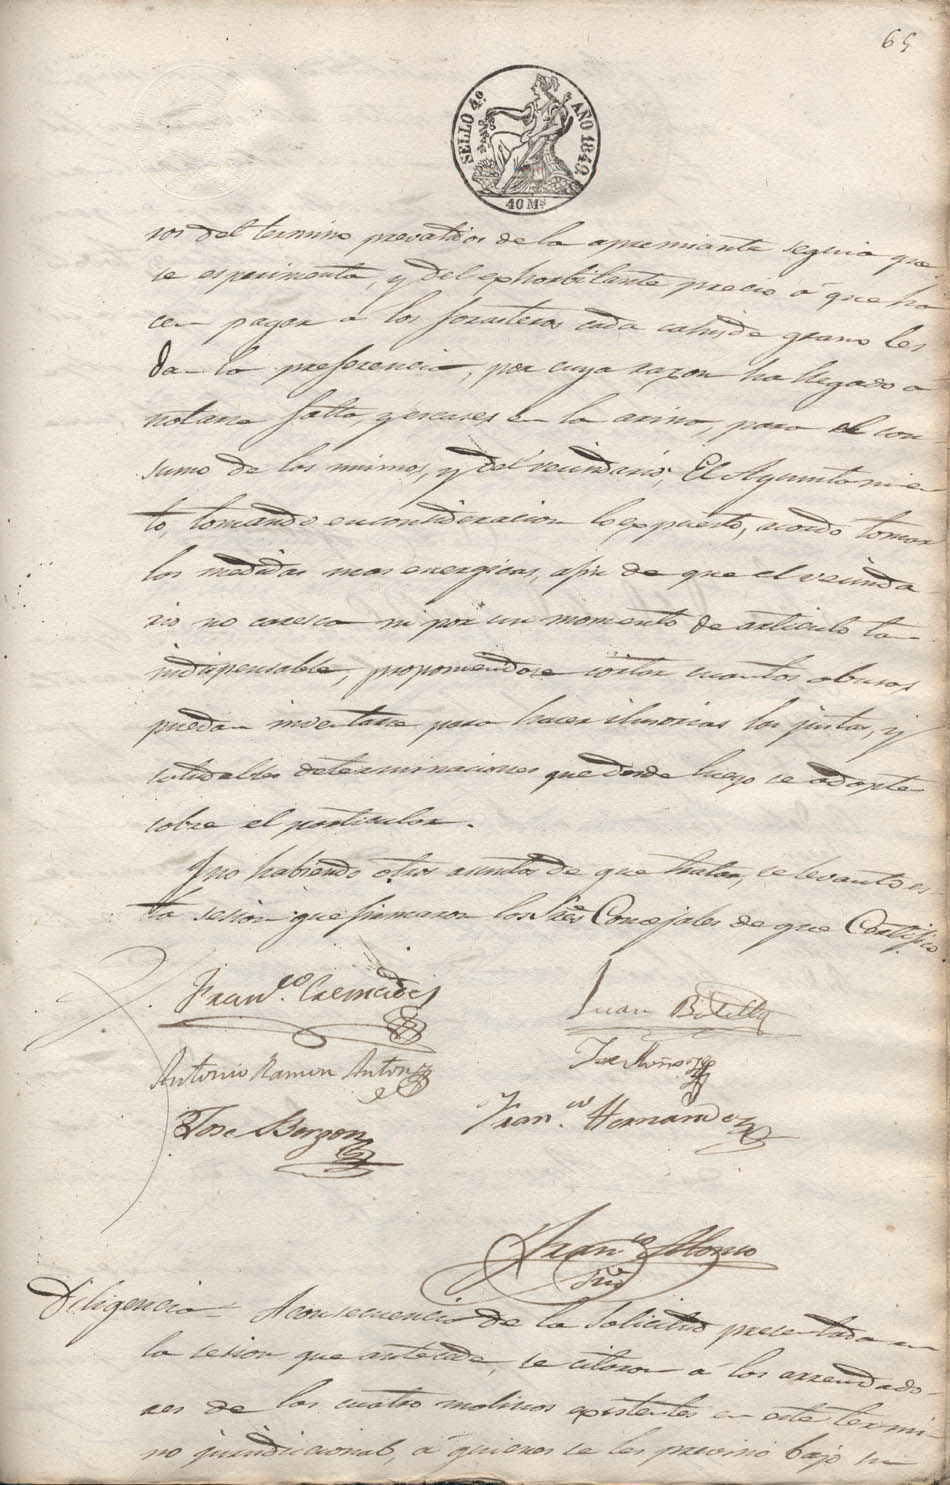 65
SELLO 4º. AÑO 1849.
40 Ms
ros del termino prevalidos de la apremiante seguia que
se esperimenta, y del exhorbitante precio á que ha
cen pagar á los forasteros cada cahis de grano les
dan la preferencia, por cuya razon ha llegado a
notarse falta, y escases en la arina, para el con
sumo de los mismos, y del vecindario; El Ayuntamien
to, tomando en consideracion lo expuesto, acordo tomar
las medidas mas energicas, afin de que el vecinda
rio no caresca ni por un momento de articulo tan
indispensable, proponiendose cortar cuantos abusos
puedan inventarse para hacer ilusorias las justas, y
saludables determinaciones que desde luego se adopten
sobre el particular.
Y no habiendo otros asuntos de que tratar, se levantó es
ta sesion que firmaron los Sres Concejales de que Certifico.
Franco. Cremades
Juan Botella
Antonio Ramon Anton
Jose Muñoz
Jose Burgos
Franco. Hernandez
Franco Alonso
Srio
Diligencia - A consecuencia de la solicitud presentada en
la sesion que antecede, se citaron á los arrendado-
res de los cuatro molinos existentes en este termi-
no jurisdiccional, á quienes se les previno bajo su